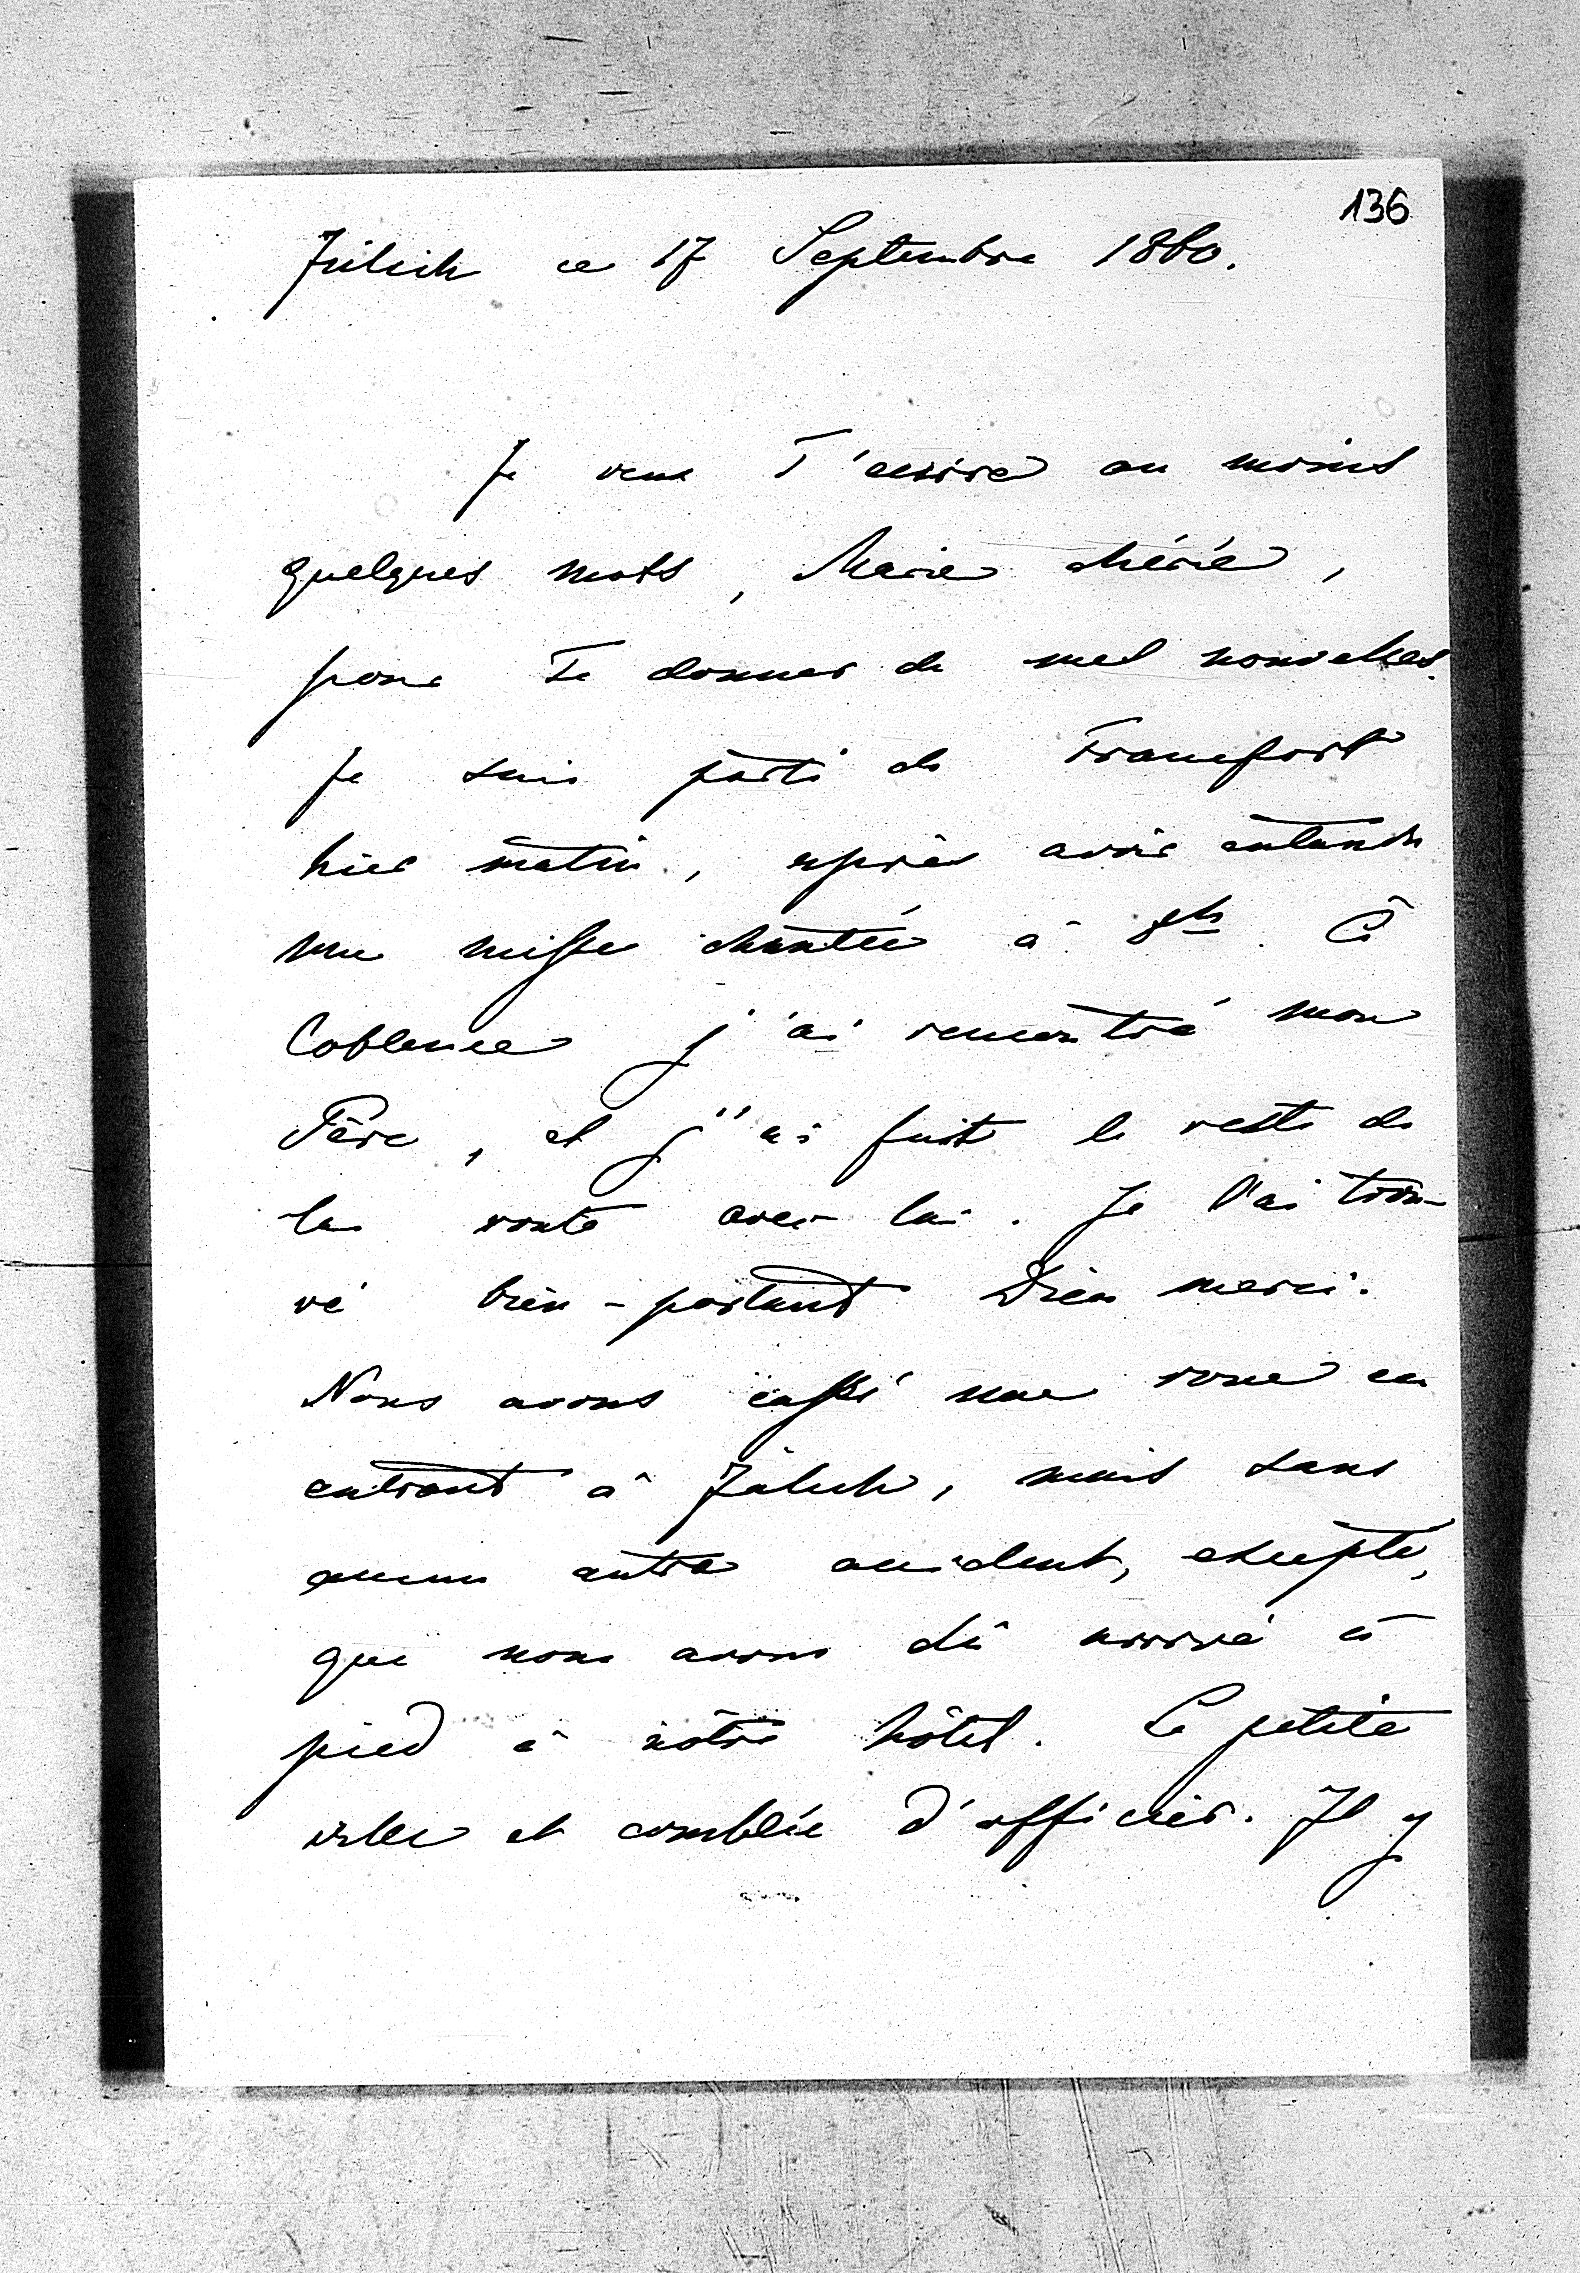 136
Jülich ce 17 Septembre 1860.
Je veux T'écrire au moins
quelques mots, Marie chérie,
pour Te donner de mes nouvelles.
Je suis parti de Francfort
hier matin, après avoir entendu
une messe chantée à 8h. A
Coblence j'ai rencontré mon
Père, et j'ai fait le reste de
la route avec lui. Je l'ai trou-
vé bien-portant Dieu merci.
Nous avons cassé une roue en
entrant à Jülich, mais sans
aucun autre accident, excepté,
que nous avons dû arrivé à
pied à nôtre hôtel. La petite
ville et comblée d'officier. Il y